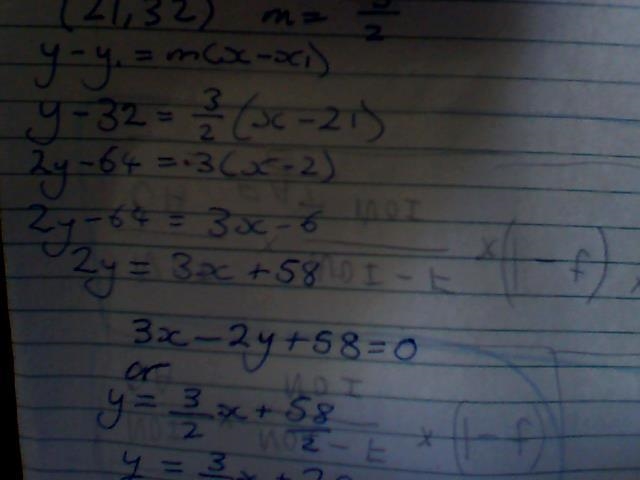 (21,32) m = 3/2
y - y₁ = m(x - x₁)
y - 32 = 3/2 (x - 21)
2y - 64 = 3(x - 2)
2y - 64 = 3x - 6
2y = 3x + 58
3x - 2y + 58 = 0
or
y = 3/2 x + 58/2